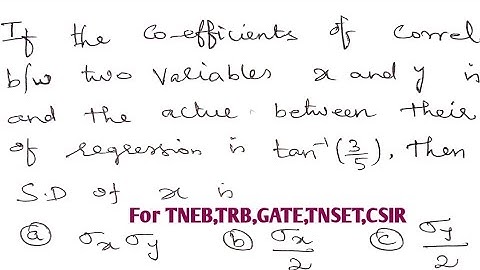 If the Co-efficients of Correl
b/w two variables x and y is
and the actue between their
of regression is tan⁻¹(3/5), Then
S.D of x is
For TNEB,TRB,GATE,TNSET,CSIR
ⓐ σₓ σᵧ ⓑ σₓ/2 ⓒ σᵧ/2